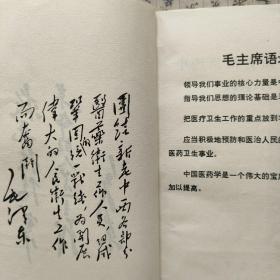 团结新老中西各部分
医药卫生工作人员，组成
巩固的统一战线，为开展
伟大的人民卫生工作
而奋斗
毛泽东
毛主席语
领导我们事业的核心力量是
指导我们思想的理论基础是
把医疗卫生工作的重点放到
应当积极地预防和医治人民的
医药卫生事业。
中国医药学是一个伟大的宝
加以提高。